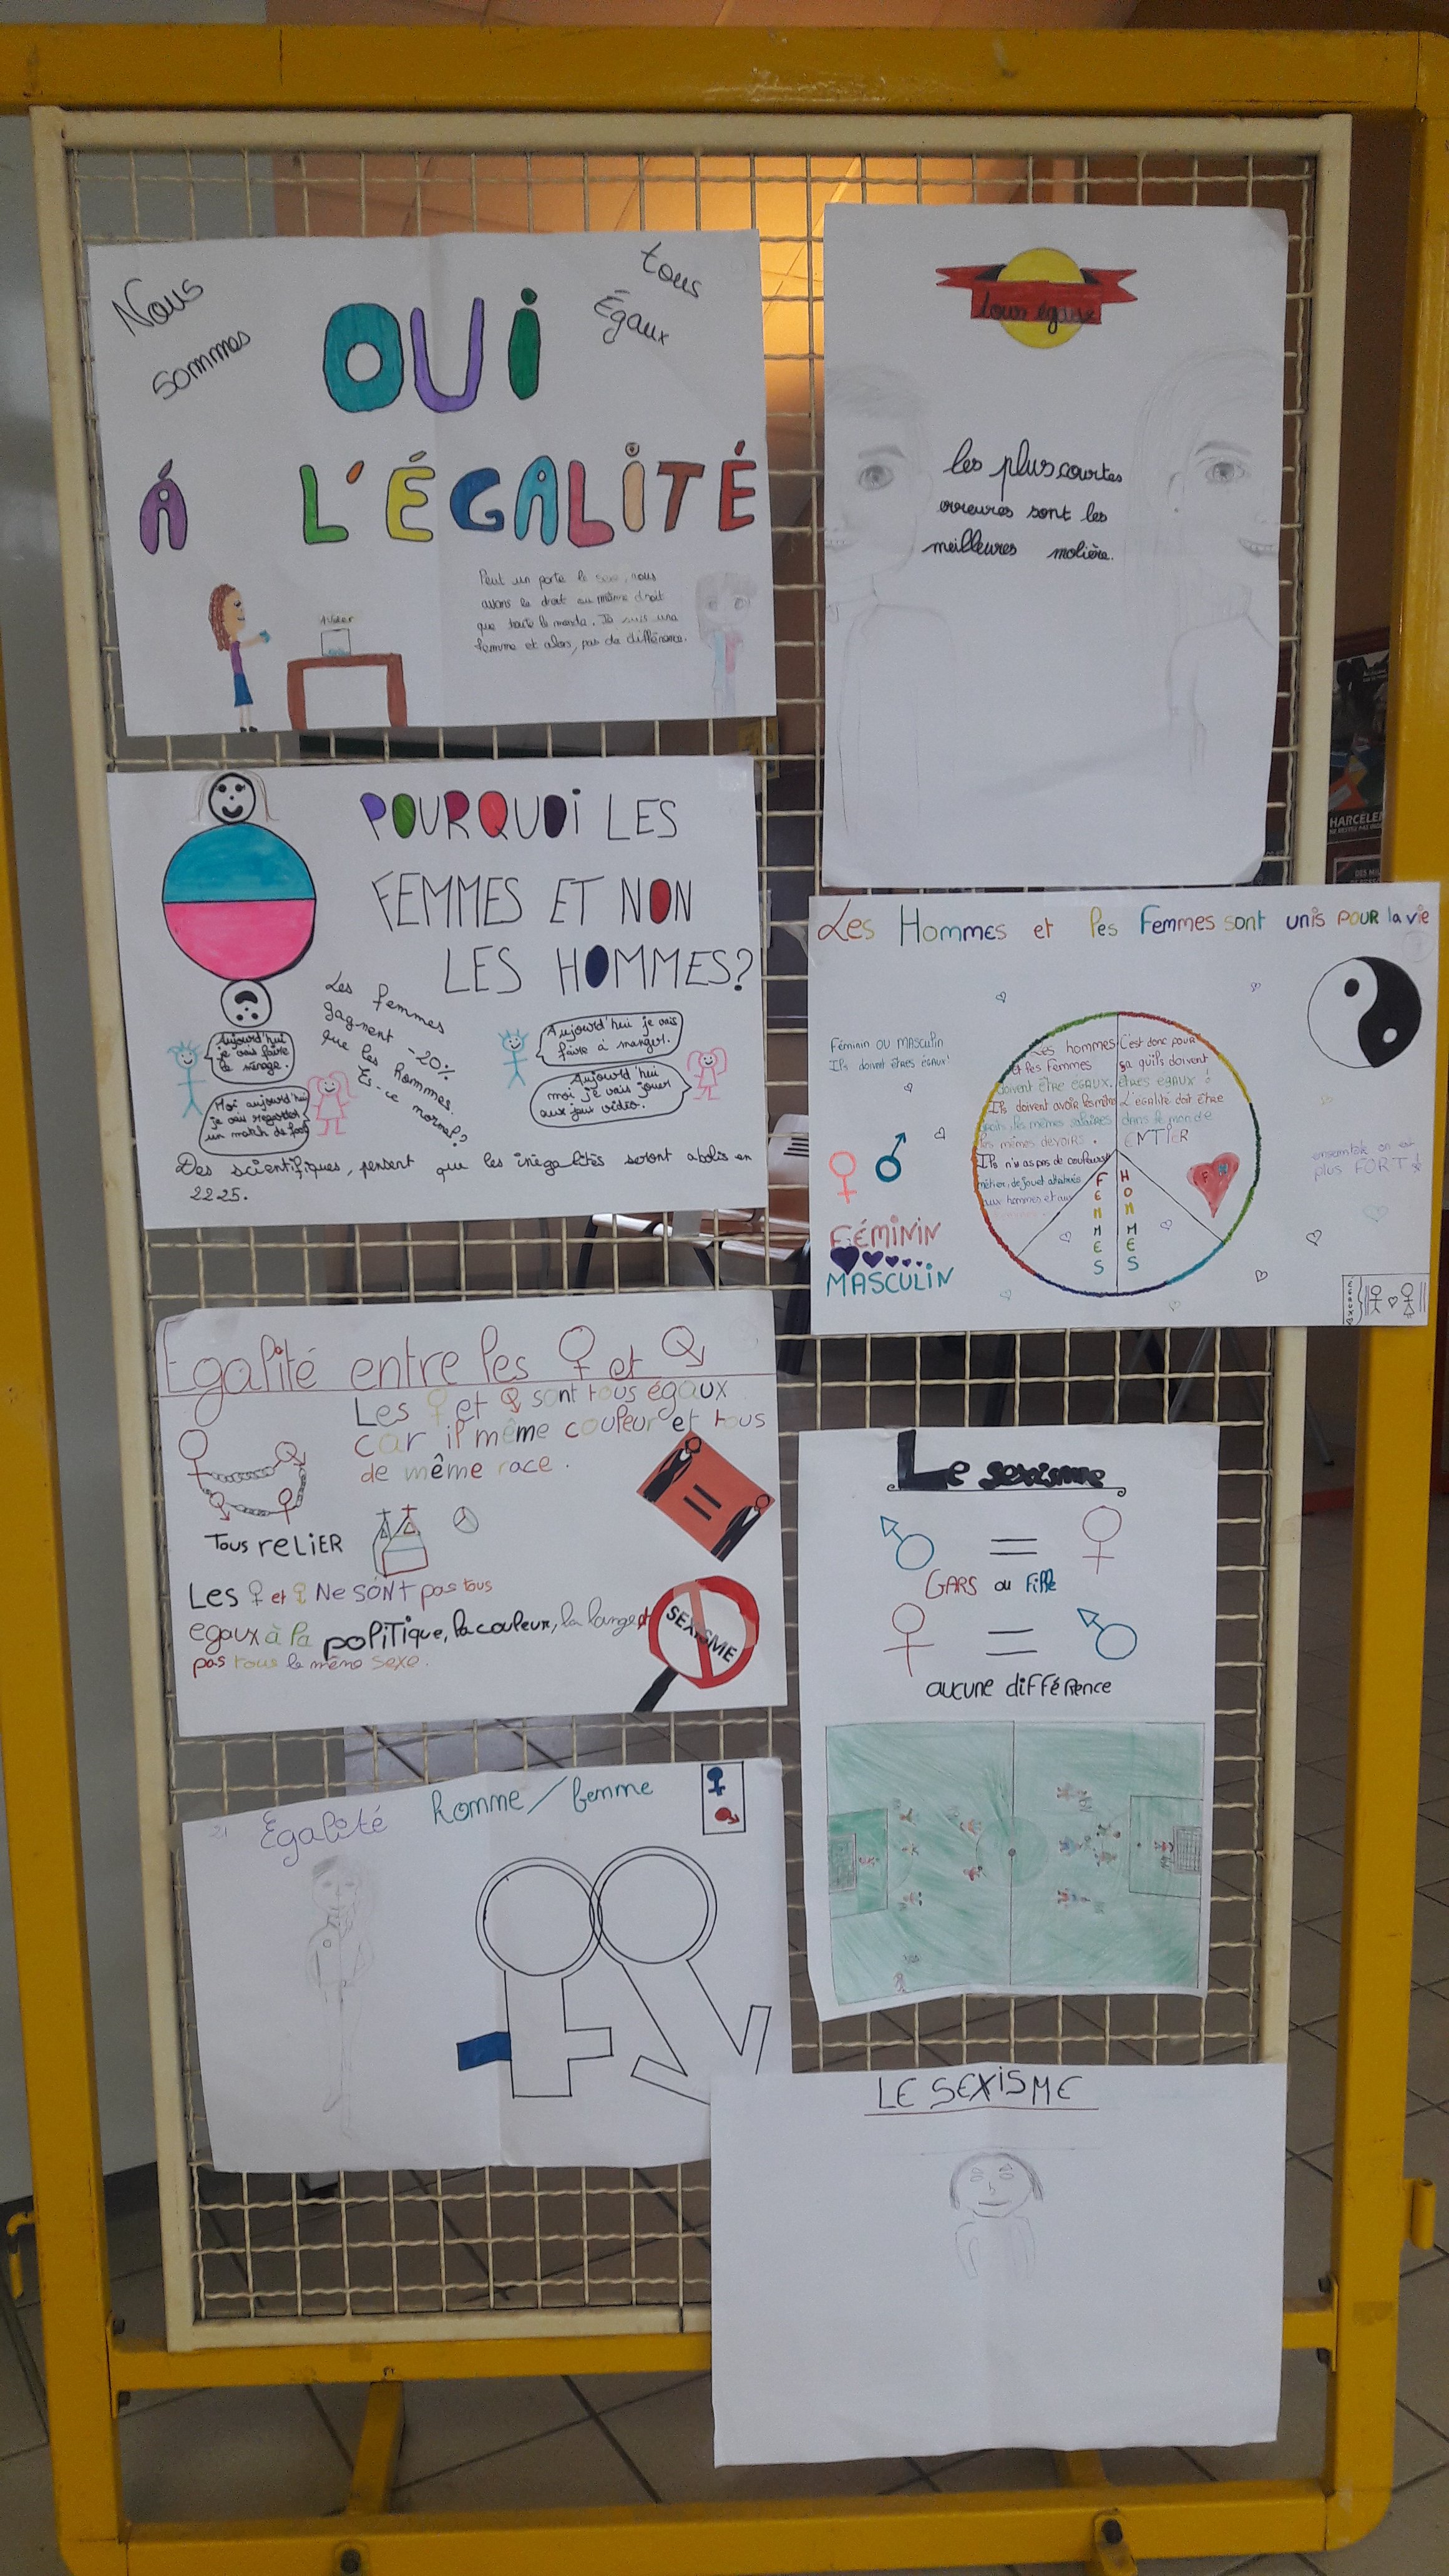 Nous
sommes
tous
Égaux
OUi
Á L'ÉGALiTÉ
Peut un porte le sexe, nous
avons le droit au même droit
que toute le monde. Je suis una
femme et alors, pas de différence.
A Voter
tous égaux
les plus courtes
erreures sont les
meilleures molière.
POURQUOi LES
FEMMES ET NON
LES HOMMES?
Les femmes
gagnent -20%
que les hommes.
Es-ce normal?
Aujourd'hui
je vais faire
le ménage.
Moi aujourd'hui
je vais regarder
un match de foot
Aujourd'hui je vais
faire à manger.
Aujourd'hui
moi je vais jouer
aux jeux vidéo.
Des scientifiques, pensent que les inégalités seront abolis en
2225.
HARCELE
Les Hommes et les Femmes sont unis POUR la vie
Féminin OU MASculin
Ils doivent êtres ÉGAUX!
FÉMININ
MASCULIN
Les hommes
et les Femmes
doivent ÊTRE EGAUX.
Ils doivent avoir les même
droits, les mêmes salaires
les mêmes DEVOIRS.
Ils n'y as pas de couleurs,
métier, de jouet attribués
aux hommes et aux
C'est donc pour
ça qu'ils doivent
êtres EGAUX !
L'égalité doit être
dans le monde
ENTIER
FEMMES
HOMMES
ensemble on est
plus FORT !
Egalité entre les ♀ et ♂
Les ♀ et ♂ sont tous égaux
car il même couleur et tous
de même race.
Tous reliER
Les ♀ et ♀ Ne SONT pas tous
egaux à la politique, la couleur, la langue et
pas tous le même sexe.
SEXISME
Le sexisme
♂ = ♀
GARS ou Fille
♀ = ♂
aucune différence
Égalité homme/femme
LE SEXiSME